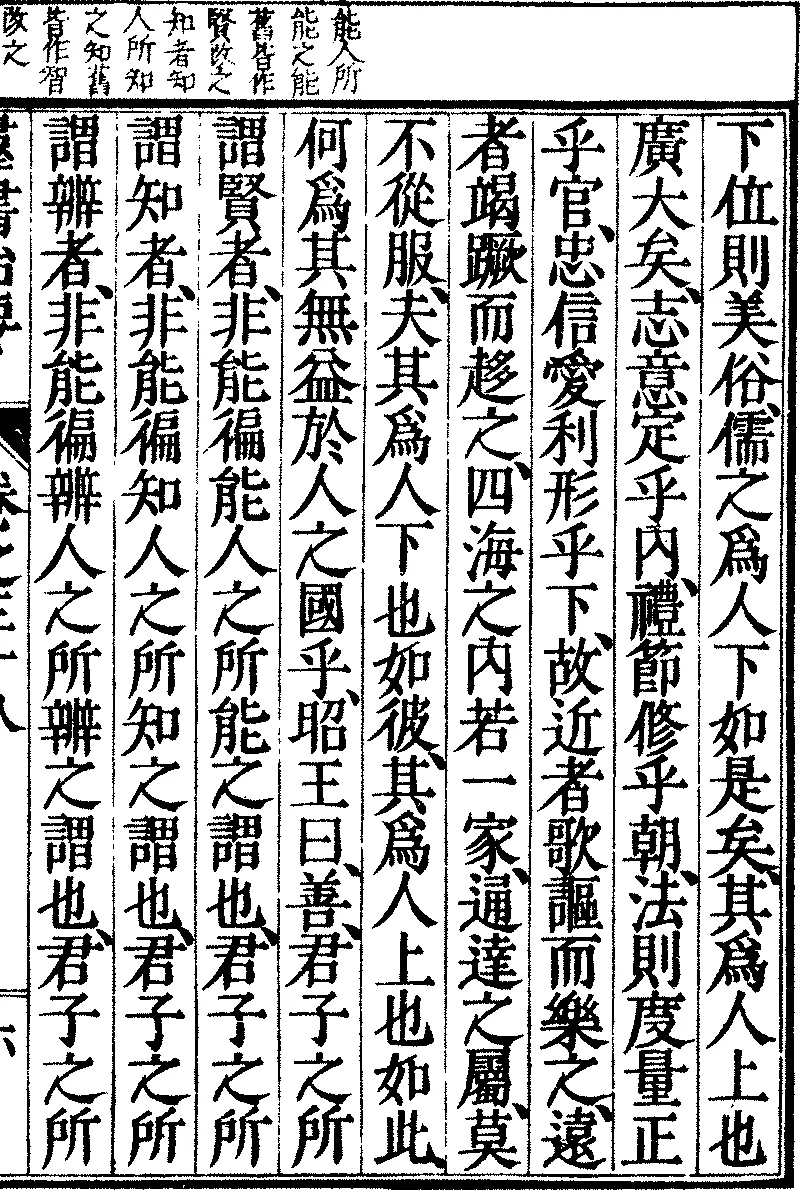 能人所
能之能
舊皆作
賢改之
知者知
人所知
之知舊
皆作智
改之
下位則美俗、儒之爲人下如是矣、其爲人上也
廣大矣、志意定乎內、禮節修乎朝、法則度量正
乎官、忠信愛利形乎下、故近者歌謳而樂之、遠
者竭蹶而趍之、四海之內若一家、通達之屬、莫
不從服、夫其爲人下也如彼、其爲人上也如此、
何爲其無益於人之國乎、昭王曰、善、君子之所
謂賢者、非能徧能人之所能之謂也、君子之所
謂知者、非能徧知人之所知之謂也、君子之所
謂辨者、非能徧辨人之所辨之謂也、君子之所